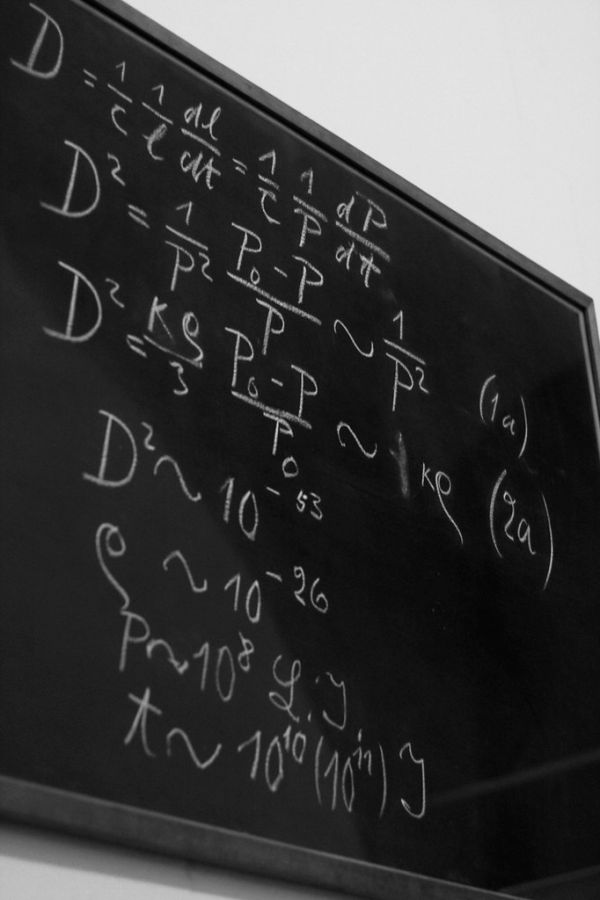 D = 1/c 1/l dl/dt = 1/c 1/P dP/dt
D² = 1/P² P₀-P/P ~ 1/P² (1a)
D² = κρ/3 P₀-P/P₀ ~ κρ (2a)
D² ~ 10⁻⁵³
ρ ~ 10⁻²⁶
P ~ 10⁸ L.J
t ~ 10¹⁰(10¹¹) J